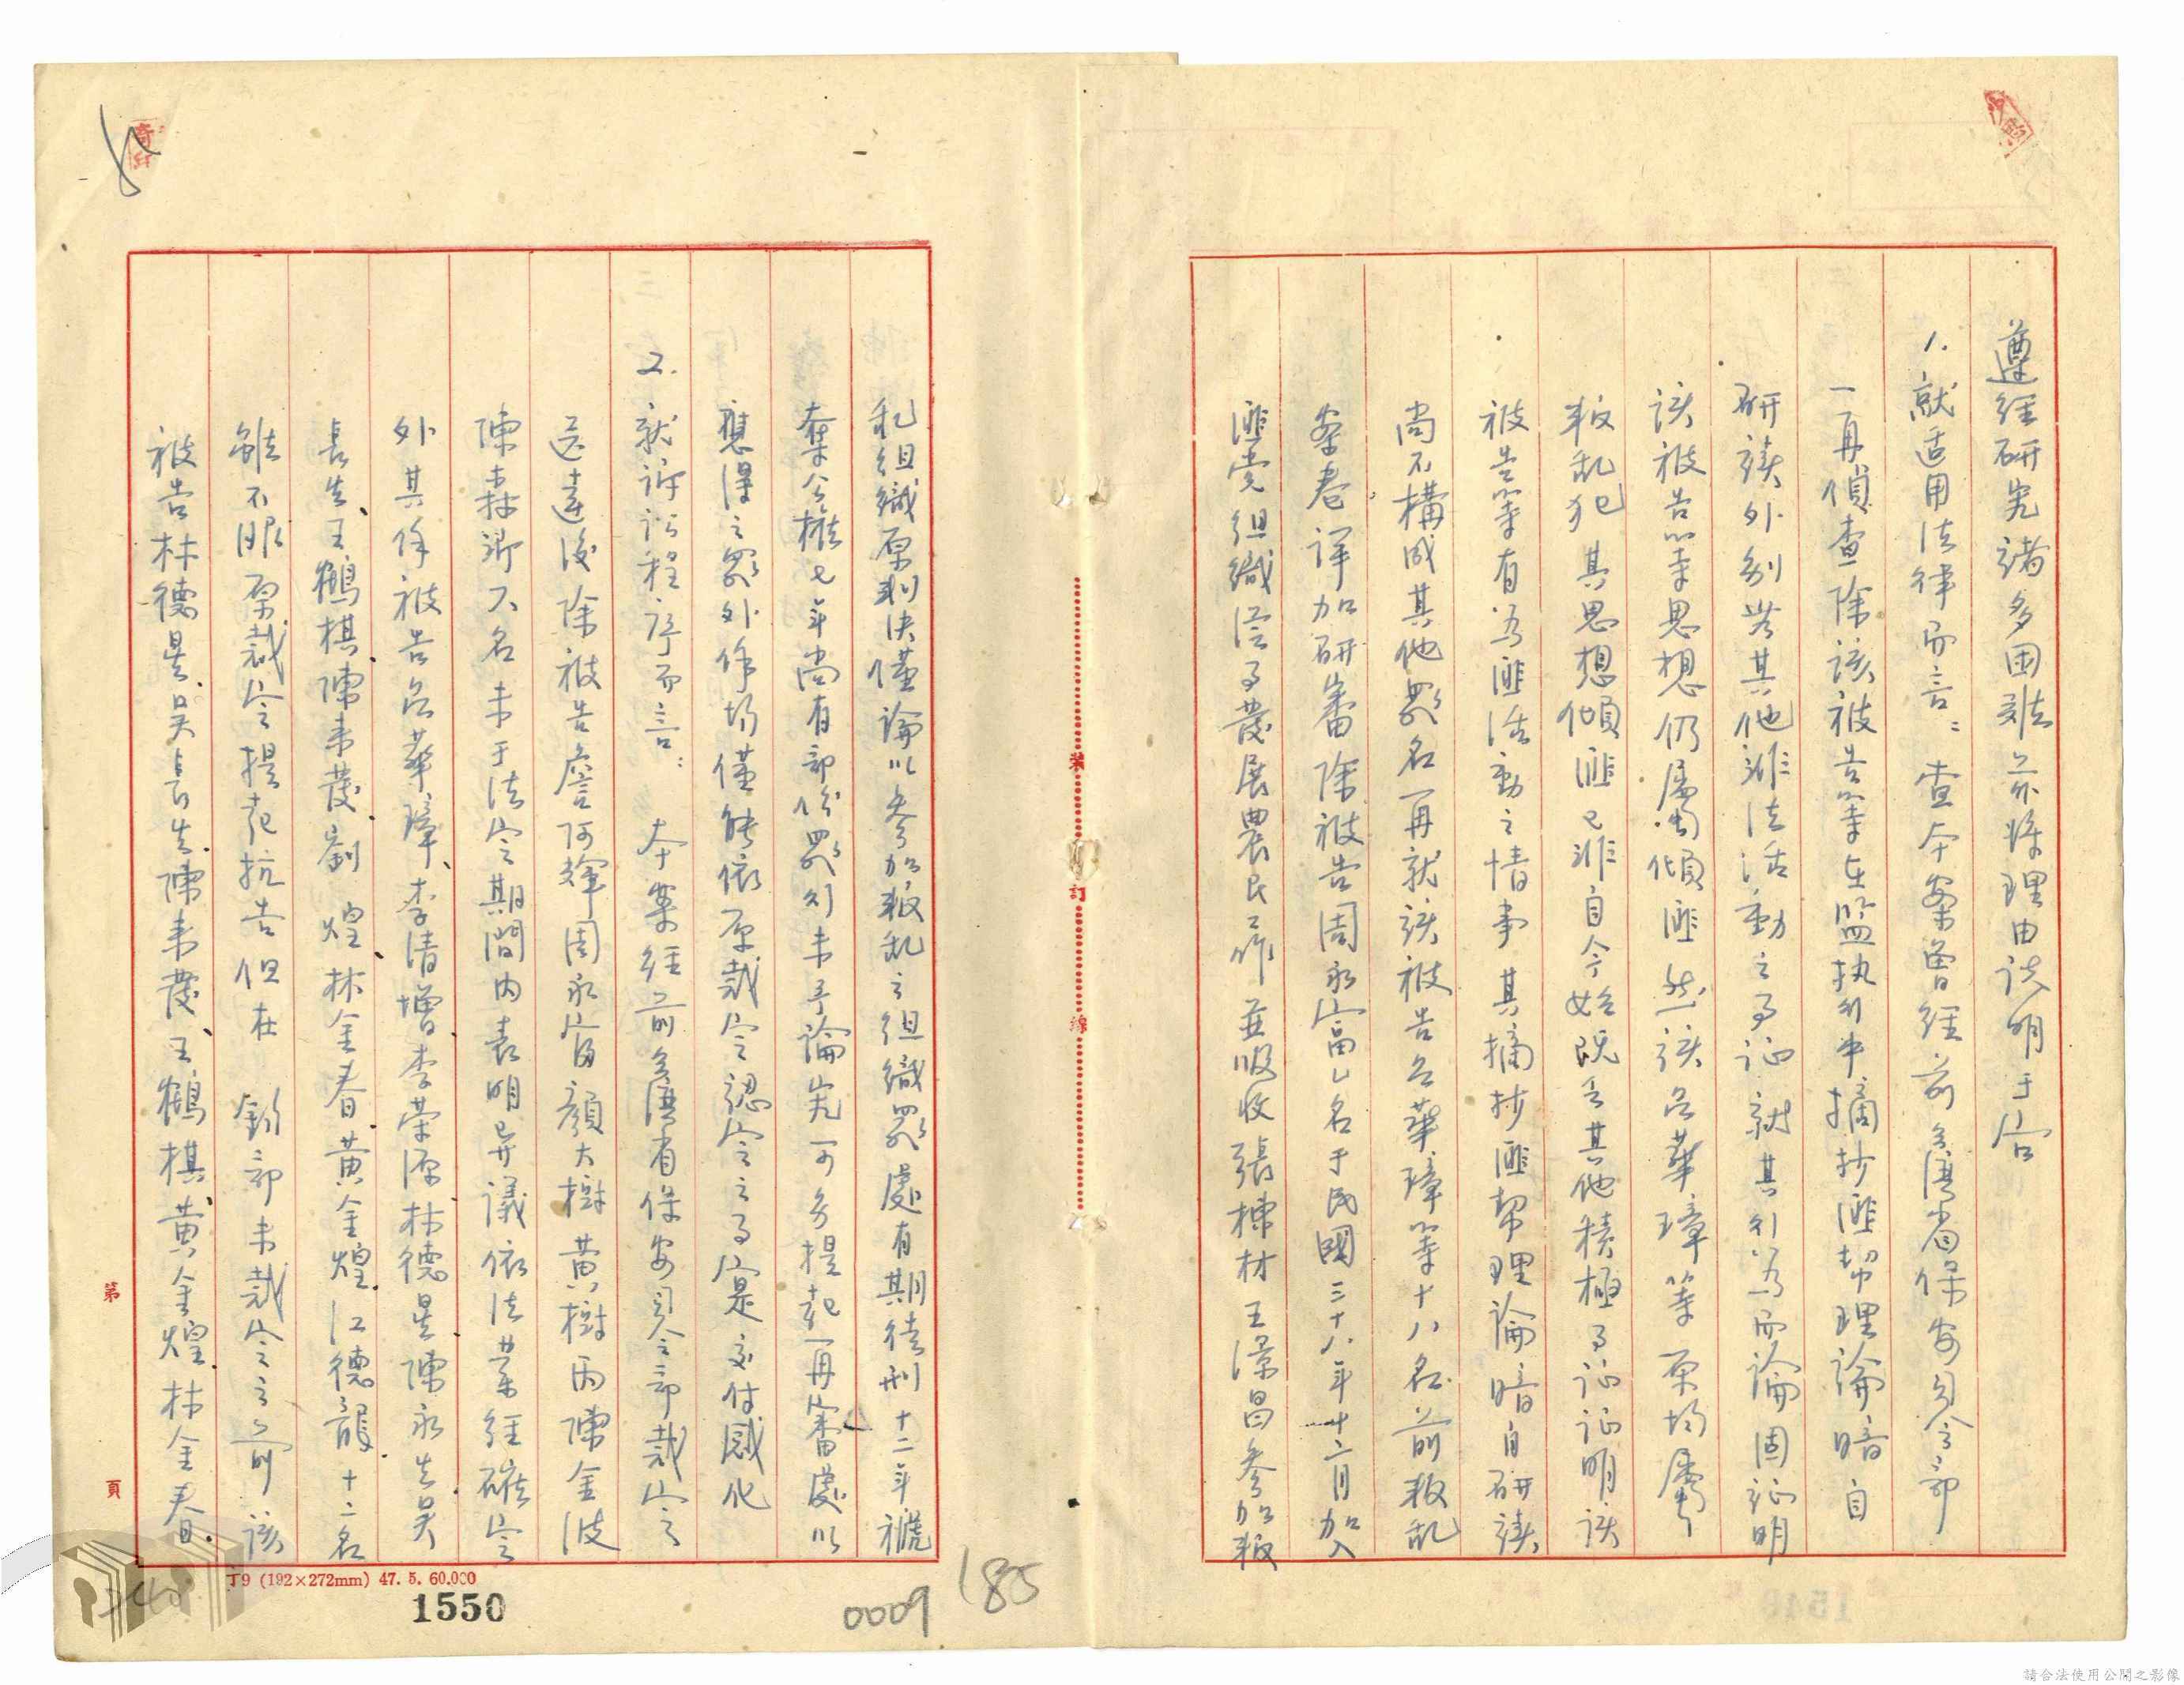 遵經研究諸多困难茲将理由說明于后
1. 就适用法律而言：查本案曾經前台湾省保安司令部
一再偵查除該被告等在監执行中摘抄匪帮理論暗自
研讀外别无其他非法活動之事证就其行為而論固证明
該被告等思想仍屬傾匪然該呂華璋等原均屬
叛乱犯其思想傾匪已非自今始既無其他積極事证证明該
被告等有為匪活動之情事其摘抄匪帮理論暗自研讀
尚不構成其他罪名再就該被告呂華璋等十八名前叛乱
案卷详加研審除被告周永富乙名于民國三十八年十二月加入
匪党组織從事發展農民工作並吸收張棟材王漢昌参加叛
乱组織原判决僅論以参加叛乱之组織罪處有期徒刑十二年褫
奪公權七年尚有部份罪行未予論究可另提起再審處以
應得之罪外餘均僅能依原裁定認定之事實交付感化
2. 就訴訟程序而言：本案經前台湾省保安司令部裁定
送達後除被告詹阿輝周永富顏大樹黄樹丙陳金波
陳森源六名未于法定期間内表明异議依法業經確定
外其餘被告呂華璋、李清增、李荣源、林德昱、陳永生、吳
長生、王鶴棋、陳来發、劉煌、林金春、黄金煌、江德龍十二名
雖不服原裁定提起抗告但在　鈞部未裁定之前該
被告林德昱、吳長生、陳来發、王鶴棋、黄金煌、林金春、
裝訂線
第 頁
丁9 (192×272mm) 47. 5. 60.000
1550
0009
185
請合法使用公開之影像